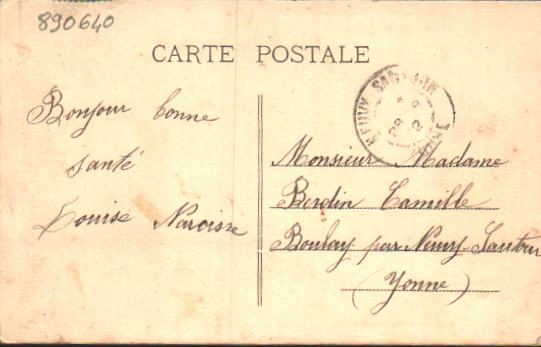 890640
CARTE POSTALE
NEUVY SAUTOUR
Bonjour bonne
santé
Louise Narcisse
Monsieur Madame
Berdin Camille
Boulay par Neuvy-Sautour
(Yonne)